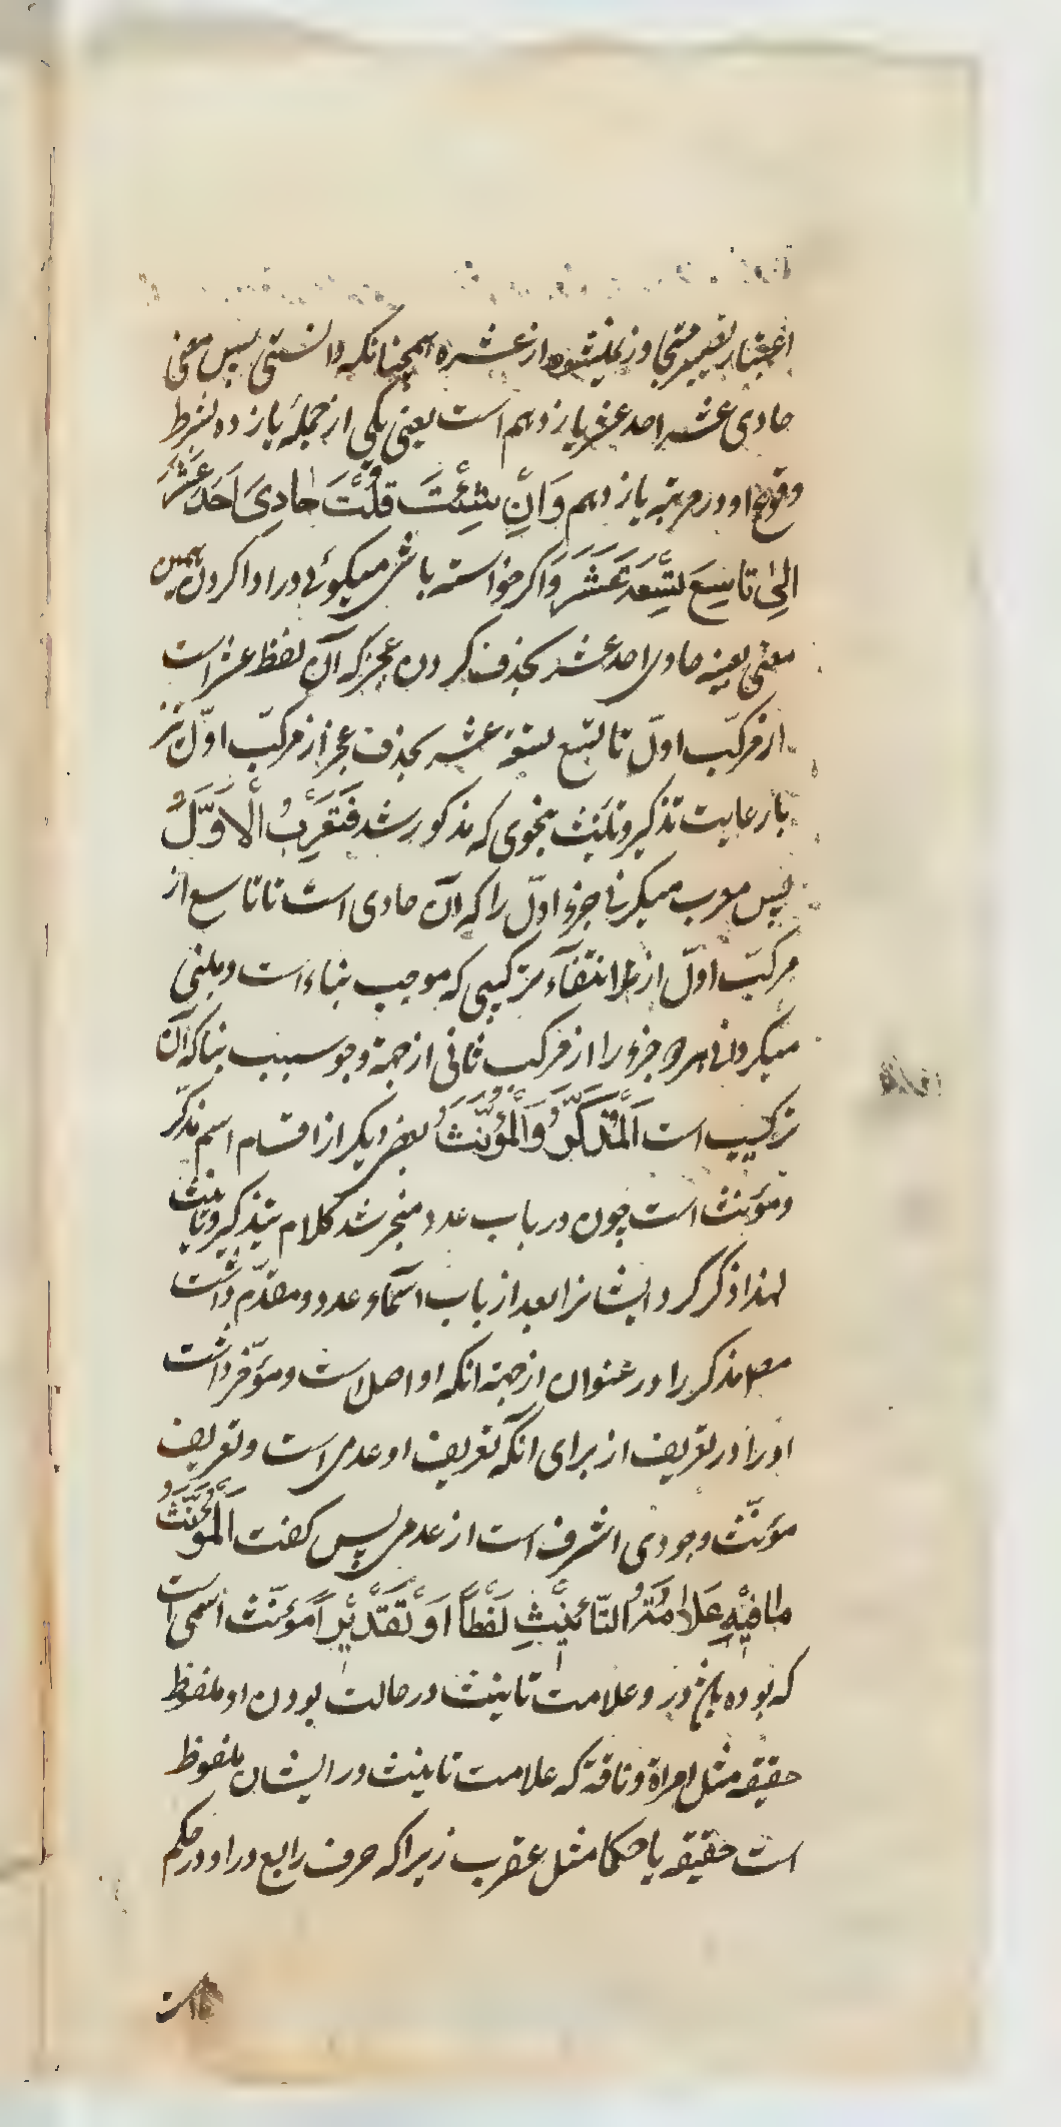 اعتبار تصییر متجاوز نمیشود از عشره همچنانکه دانستی پس معنی
حادی عشر احد عشر یازدهم است یعنی یکی از جملهٔ یازده بشرط
وقوع او در مرتبه یازدهم وَاِنْ شِئْتَ قُلْتَ حادِیَ اَحَدَ عَشَرَ
اِلیٰ تاسِعَ تِسْعَةَ عَشَرَ و اکر خواسته باشی میکوئی در ادا کردن همین
معنی بعینه حادی احد عشر بحذف کردن عجز که آن لفظ عشر است
از مرکّب اوّل تا تاسع تسعة عشر بحذف عجز از مرکّب اوّل نیز
با رعایت تذکیر و تانیث بنحوی که مذکور شد فَتُعْرِبُ الْاَوَّلَ
پس معرب میکردانی جزء اوّل را که آن حادی است تا تاسع از
مرکّب اوّل از انتفآء ترکیبی که موجب بناء است و مبنی
میکردانی هر دو جزء را از مرکب ثانی از جهة وجود سبب بنا که آن
ترکیب است اَلْمُذَکَّرُ وَالْمُؤَنَّثُ بعض دیکر از اقسام اسم مذکّر
و مؤنث است چون در باب عدد منجر شد کلام بتذکیر و تانیث
لهذا ذکر کرد ایشانرا بعد از باب اسمآء عدد و مقدّم داشت
مص مذکر را در عنوان از جهة انکه او اصل است و مؤخّر داشت
او را در تعریف از برای آنکه تعریف او عدمی است و تعریف
مؤنّث وجودی اشرف است از عدمی پس کفت اَلْمُؤَنَّثُ
ما فیْهِ عَلامَةُ التّأنیْثِ لَفْظاً اَوْ تَقْدیْراً مؤنّث اسمی است
که بوده باشد در و علامت تانیث در حالت بودن او ملفوظ
حقیقه مثل امراة و ناقة که علامت تانیث در ایشان ملفوظ
است حقیقه یا حکما مثل عقرب زیرا که حرف رابع در او در حکم
تا است